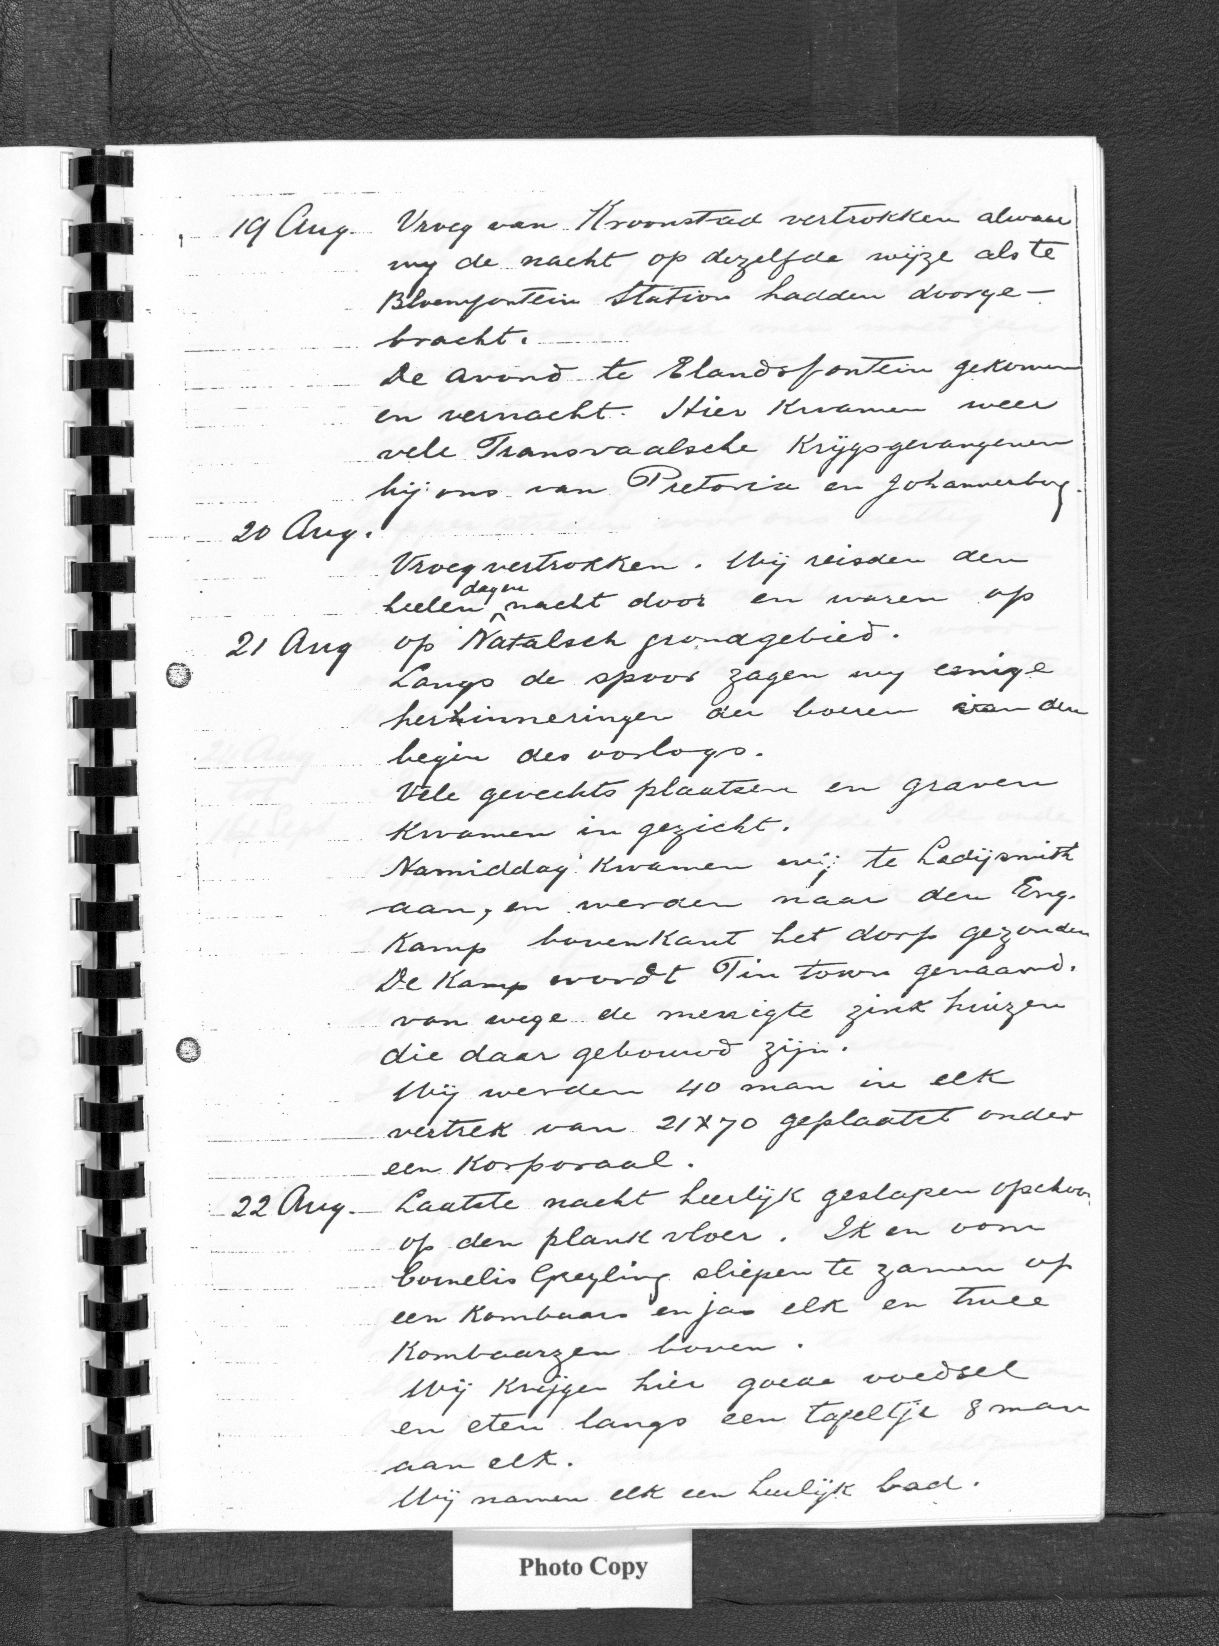 19 Aug. Vroeg van Kroonstad vertrokken alwaar
wy de nacht op dezelfde wijze als te
Bloemfontein Station hadden doorge-
bracht.
De avond te Elandsfontein gekomen
en vernacht. Hier kwamen weer
vele Transvaalsche Krijgsgevangenen
bij ons van Pretoria en Johannesburg.
20 Aug.
Vroeg vertrokken. Wij reisden den
heelen dag en nacht door en waren op
21 Aug op Natalsch grondgebied.
Langs de spoor zagen wy eenige
herinneringen der boeren van den
begin des oorlogs.
Vele gevechts plaatsen en graven
kwamen in gezicht.
Namiddag kwamen wij te Ladijsmith
aan, en werden naar den Eng.
Kamp bovenkant het dorp gezonden
De Kamp wordt Tin town genaamd.
van wege de menigte zink huizen
die daar gebouwd zijn.
Wij werden 40 man in elk
vertrek van 21x70 geplaatst onder
een Korporaal.
22 Aug. Laatste nacht heerlijk geslapen
op den plank vloer. Ik en oom
Cornelis Greyling sliepen te zamen op
een Kombaars en jas elk en twee
Kombaarzen boven.
Wij krijgen hier goede voedsel
en eten langs een tafeltje 8 man
aan elk.
Wij namen elk een heerlijk bad.
Photo Copy